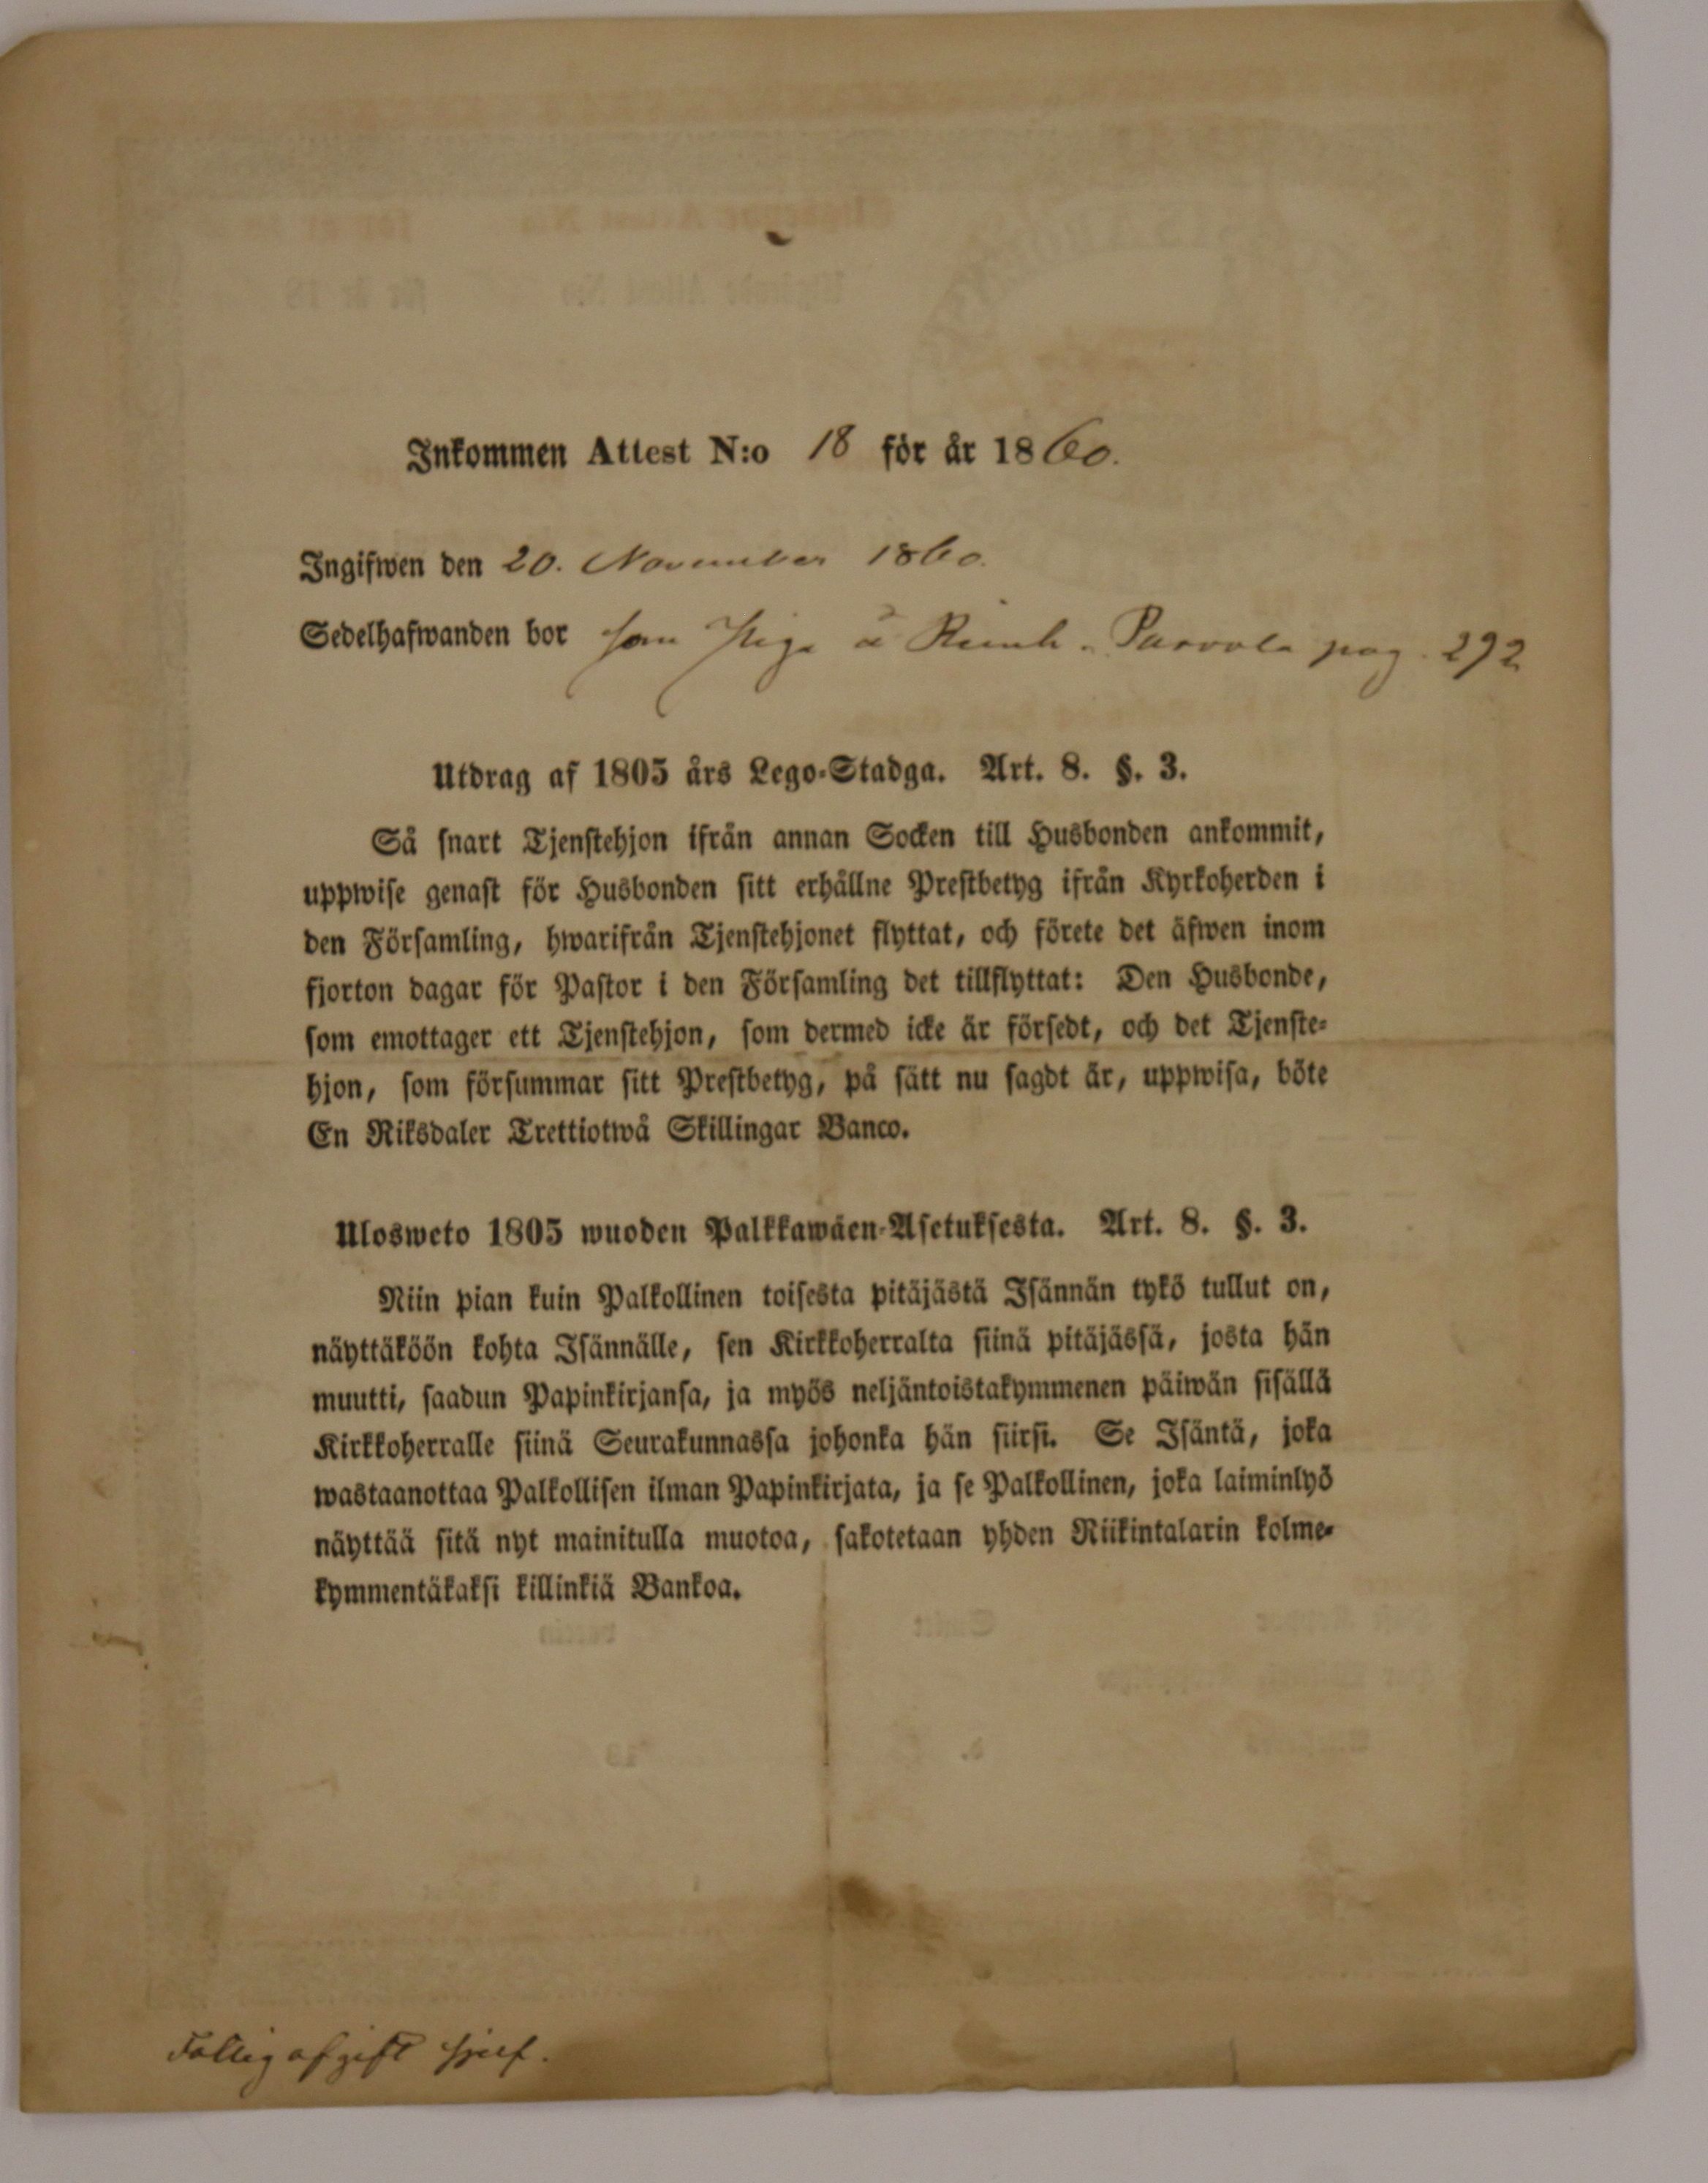 Inkommen Attest N:o 18 för år 1860.
Ingifwen den 20. November 1860.
Sedelhafwanden bor som Piga å Parvola pag. 292
Utdrag af 1805 års Lego-Stadga. Art. 8. §. 3.
Så snart Tjenstehjon ifrån annan Socken till Husbonden ankommit,
uppwise genast för Husbonden sitt erhållne Prestbetyg ifrån Kyrkoherden i
den Församling, hwarifrån Tjenstehjonet flyttat, och förete det äfwen inom
fjorton dagar för Pastor i den Församling det tillflyttat: Den Husbonde,
som emottager ett Tjenstehjon, som dermed icke är försedt, och det Tjenste-
hjon, som försummar sitt Prestbetyg, på sätt nu sagdt är, uppwisa, böte
En Riksdaler Trettiotwå Skillingar Banco.
Ulosweto 1805 wuoden Palkkawäen-Asetuksesta. Art. 8. §. 3.
Niin pian kuin Palkollinen toisesta pitäjästä Isännän tykö tullut on,
näyttäköön kohta Isännälle, sen Kirkkoherralta siinä pitäjässä, josta hän
muutti, saadun Papinkirjansa, ja myös neljäntoistakymmenen päiwän sisällä
Kirkkoherralle siinä Seurakunnassa johonka hän siirsi. Se Isäntä, joka
wastaanottaa Palkollisen ilman Papinkirjata, ja se Palkollinen, joka laiminlyö
näyttää sitä nyt mainitulla muotoa, sakotetaan yhden Riikintalarin kolme-
kymmentäkaksi killinkiä Bankoa.
Fattig afgift